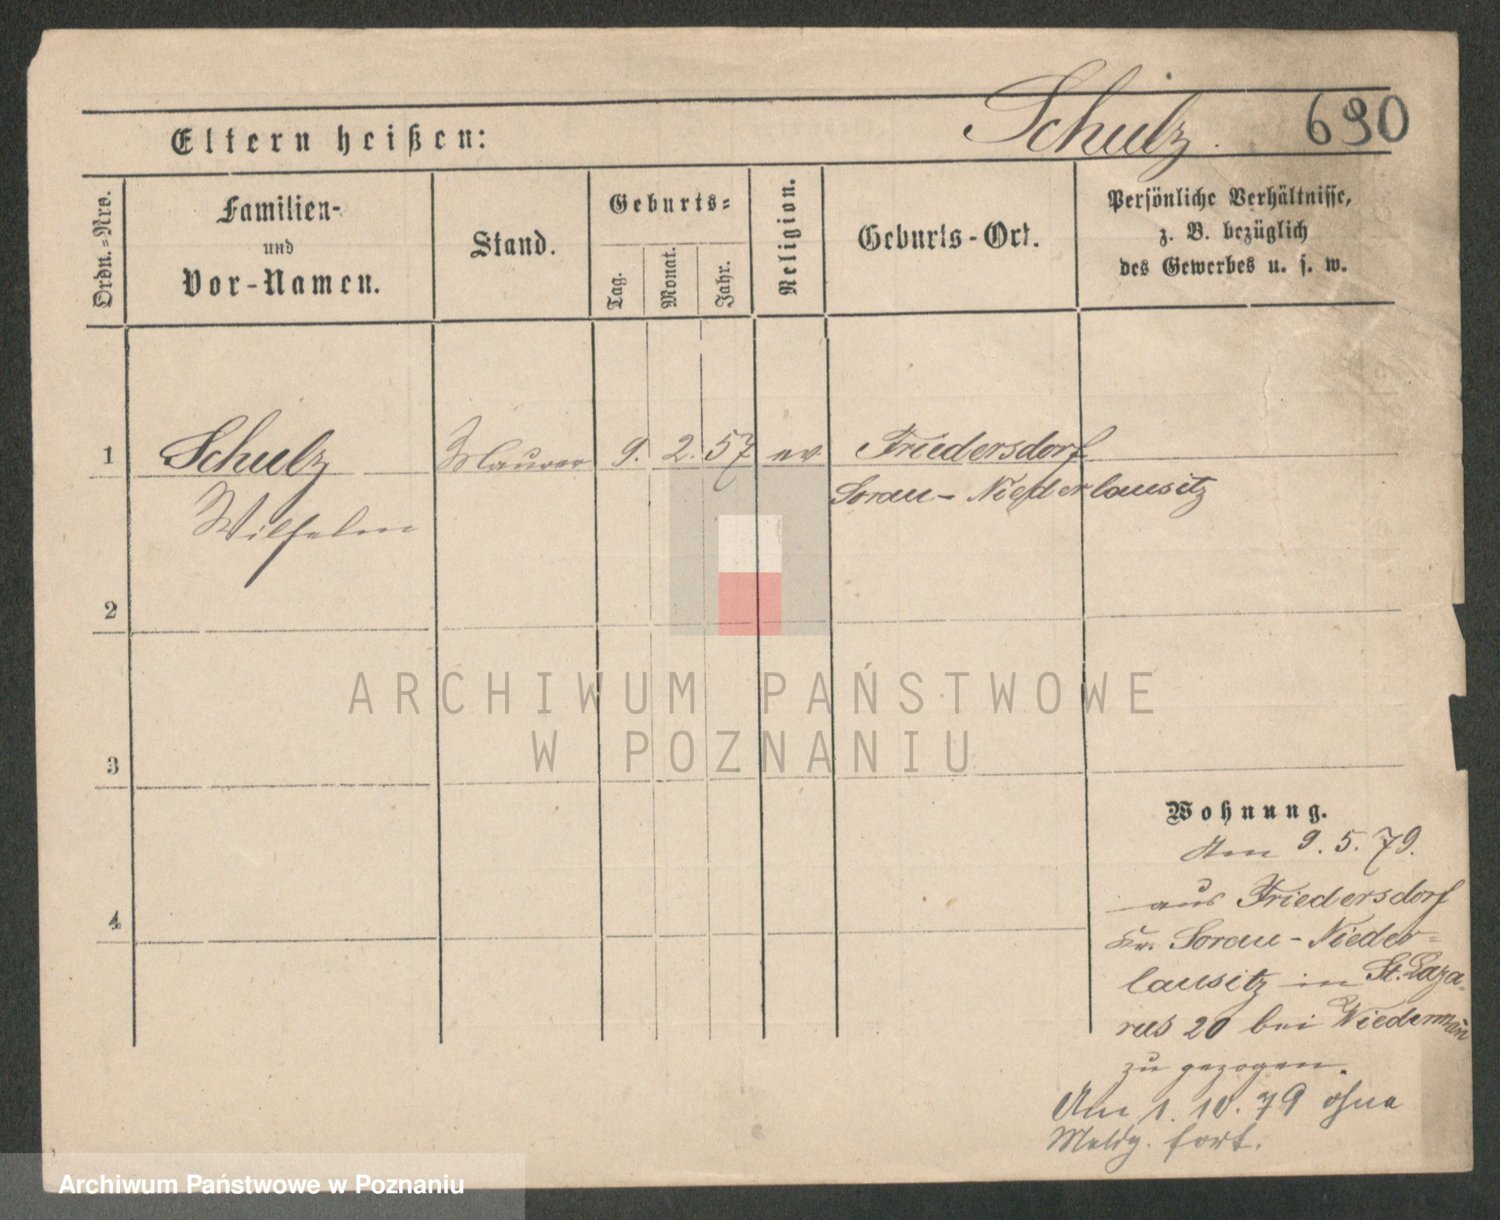 Schulz.
690
Eltern heißen:
Ordn.-Nro.
Familien-
und
Vor-Namen.
Stand.
Geburts-
Tag.
Monat.
Jahr.
Religion.
Geburts-Ort.
Persönliche Verhältnisse,
z. B. bezüglich
des Gewerbes u. s. w.
1 Schulz Maurer 9. 2. 57 ev Friedersdorf
Wilhelm Sorau-Niederlausitz
2
3
4
ARCHIWUM PAŃSTWOWE
W POZNANIU
Wohnung.
Am 9. 5. 79.
aus Friedersdorf
Kr. Sorau-Nieder-
lausitz in St. Laza-
rus 20 bei Wiedermann
zu gezogen.
Am 1. 10. 79 ohne
Meldg. fort.
Archiwum Państwowe w Poznaniu